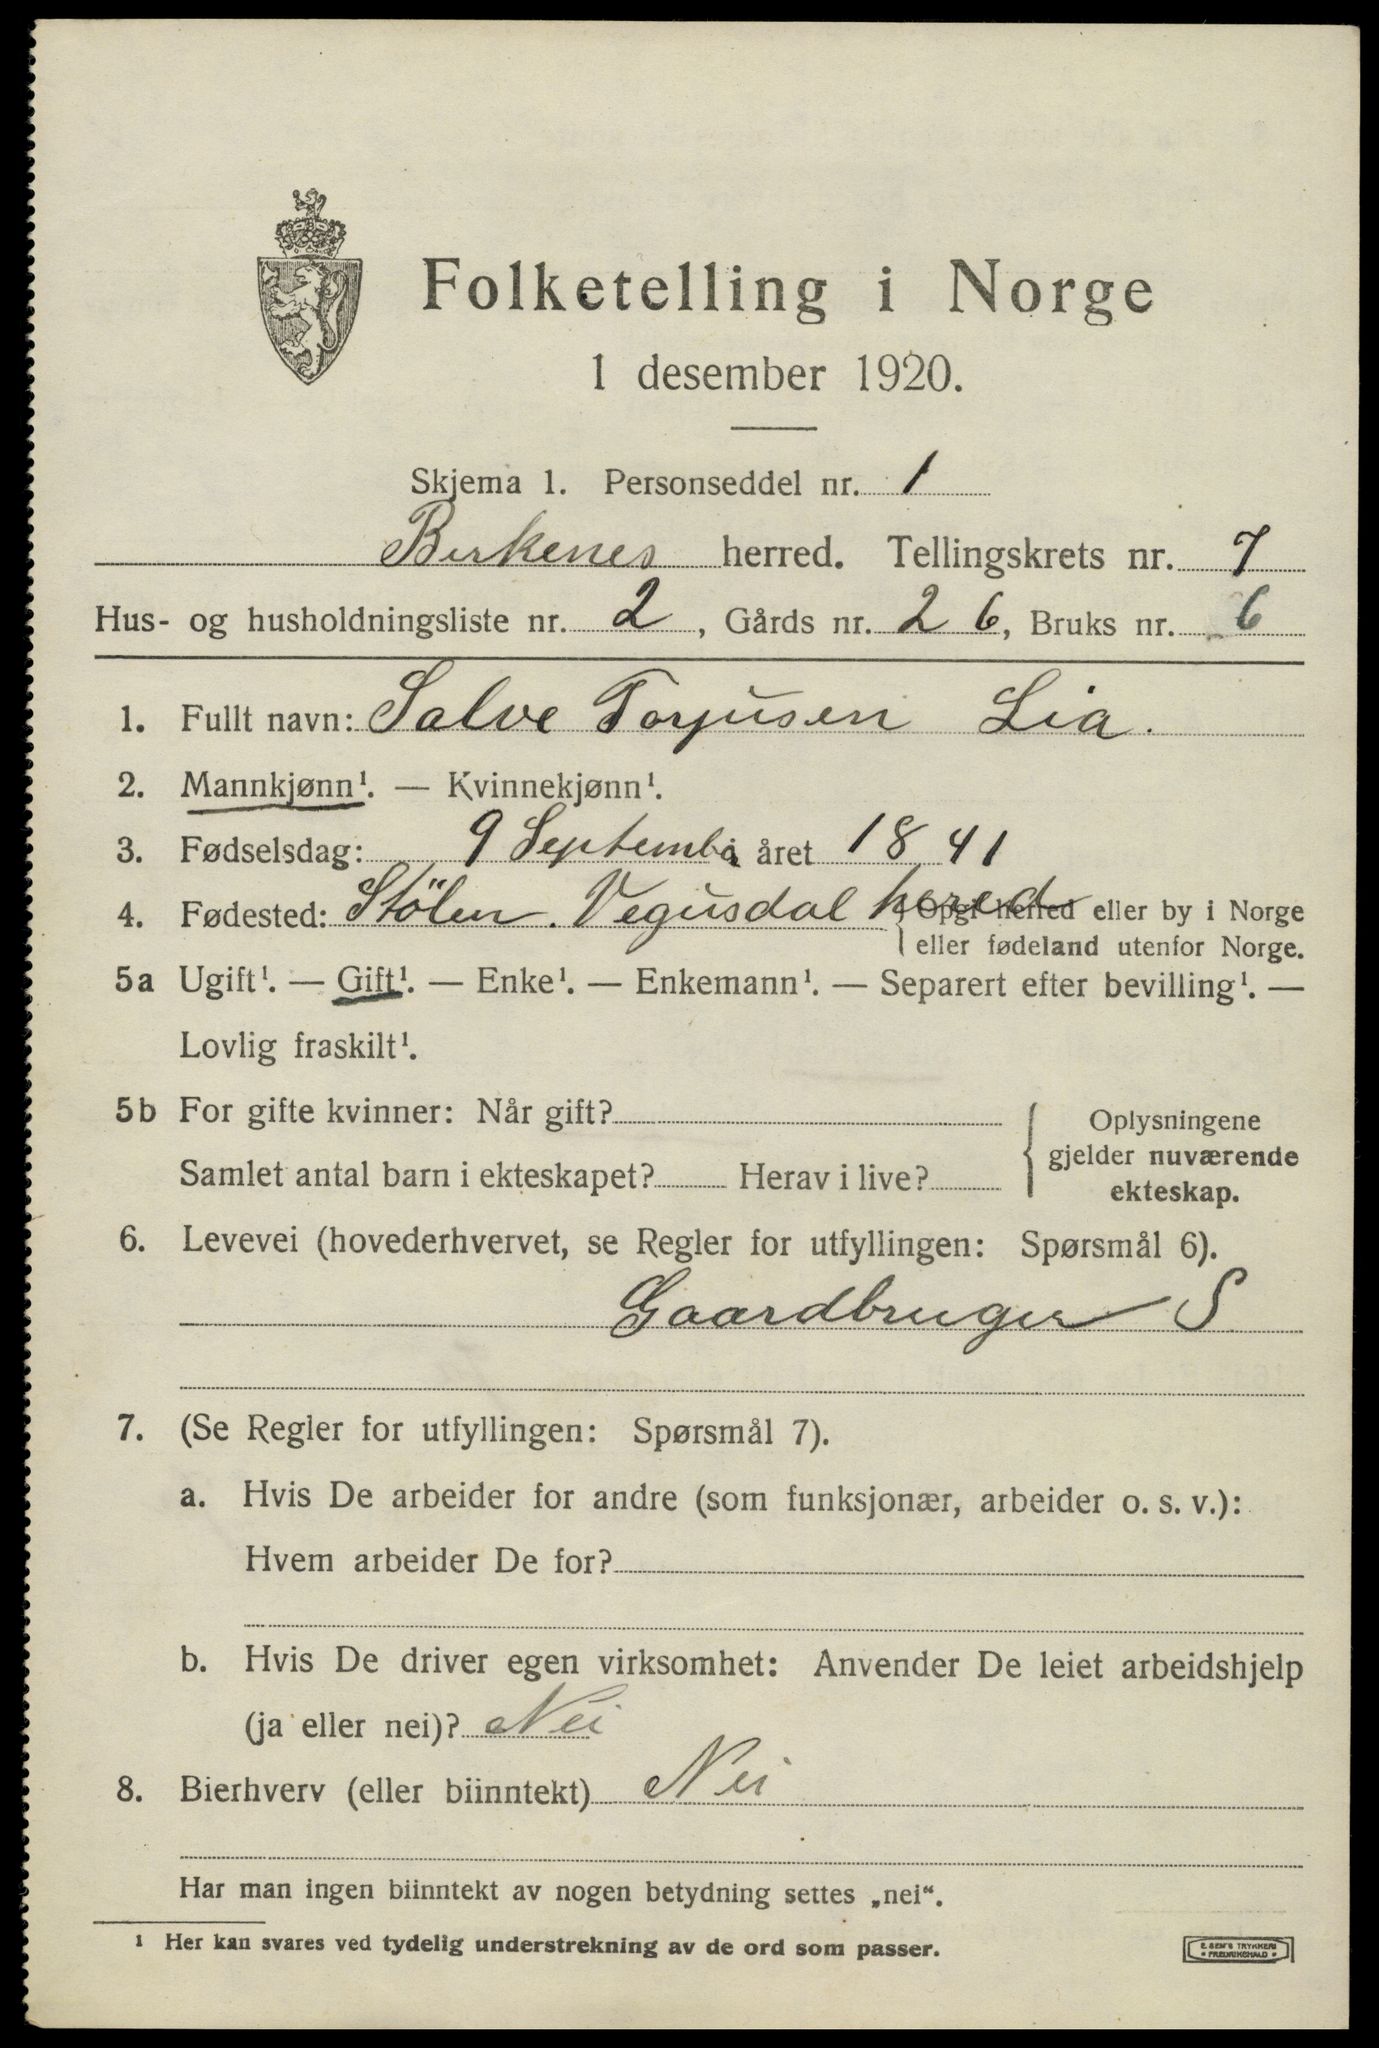 Folketelling i Norge
1 desember 1920.
Skjema 1. Personseddel nr. 1
Birkenes herred. Tellingskrets nr. 7
Hus- og husholdningsliste nr. 2, Gårds nr. 26, Bruks nr. 6
1. Fullt navn: Salve Torjusen Lia.
2. Mannkjønn¹. — Kvinnekjønn¹.
3. Fødselsdag: 9 Septemb. året 1841
4. Fødested: Stölen. Vegusdal hered { Opgi herred eller by i Norge
eller fødeland utenfor Norge.
5a Ugift¹. — Gift¹. — Enke¹. — Enkemann¹. — Separert efter bevilling¹. —
Lovlig fraskilt¹.
5b For gifte kvinner: Når gift? { Oplysningene
gjelder nuværende
Samlet antal barn i ekteskapet? Herav i live? ekteskap.
6. Levevei (hovederhvervet, se Regler for utfyllingen: Spørsmål 6).
Gaardbruger S
7. (Se Regler for utfyllingen: Spørsmål 7).
a. Hvis De arbeider for andre (som funksjonær, arbeider o. s. v.):
Hvem arbeider De for?
b. Hvis De driver egen virksomhet: Anvender De leiet arbeidshjelp
(ja eller nei)? Nei
8. Bierhverv (eller biinntekt) Nei
Har man ingen biinntekt av nogen betydning settes „nei“.
¹ Her kan svares ved tydelig understrekning av de ord som passer.
E. SEM'S TRYKKERI
• FREDRIKSHALD •